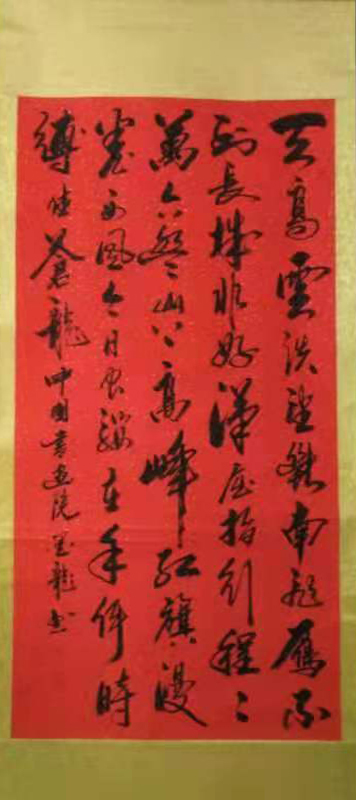 天高雲淡望斷南飛雁不
到長城非好漢屈指行程二
萬六盤山上高峰紅旗漫
卷西風今日長纓在手何時
縛住蒼龍中國書畫院龍书